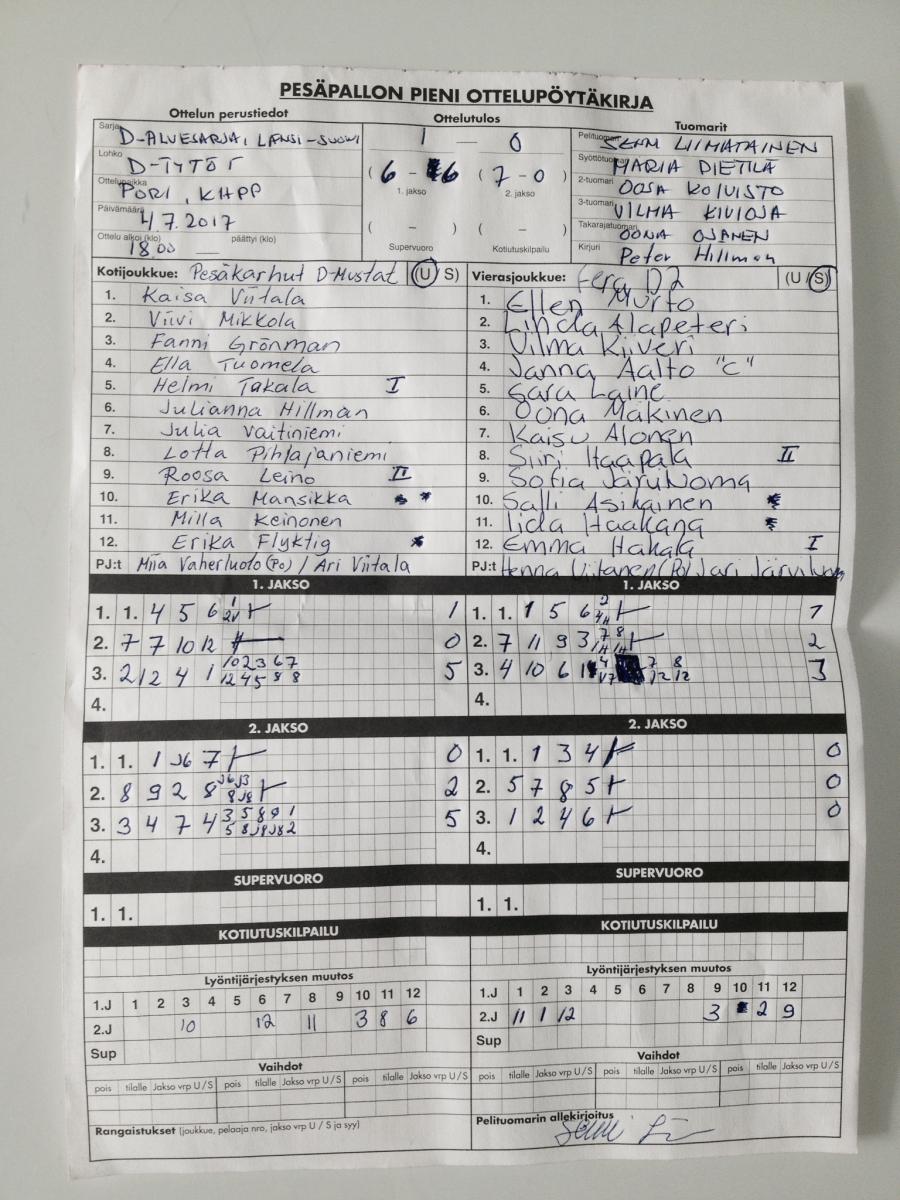 PESÄPALLON PIENI OTTELUPÖYTÄKIRJA
Ottelun perustiedot
Ottelutulos
Tuomarit
Sarja D-ALUESARJA, LÄNSI-SUOMI
1 — 0
Lohko D-TYTÖT
(6 - 6) (7 - 0)
1. jakso 2. jakso
Ottelupaikka PORI, KHPP
Päivämäärä 4.7.2017
( – ) ( – )
Ottelu alkoi (klo) 18.00 päättyi (klo)
Supervuoro Kotiutuskilpailu
Pelituomari LIIMATAINEN
Syöttötuomari MARIA PIETILÄ
2-tuomari OOSA KOIVISTO
3-tuomari VILMA KIVIOJA
Takarajatuomari OONA OJANEN
Kirjuri Peter Hillman
Kotijoukkue: Pesäkarhut D-Mustat (U/S)
1. Kaisa Viitala
2. Viivi Mikkola
3. Fanni Grönman
4. Ella Tuomela
5. Helmi Takala I
6. Julianna Hillman
7. Julia Vaitiniemi
8. Lotta Pihlajaniemi
9. Roosa Leino II
10. Erika Mansikka
11. Milla Keinonen
12. Erika Flyktig
PJ:t Miia Vaherluoto (Po) / Ari Viitala
Vierasjoukkue: Fera D2 (U/S)
1. Ellen Murto
2. Linda Alapeteri
3. Vilma Kiiveri
4. Janna Aalto "C"
5. Sara Laine
6. Oona Mäkinen
7. Kaisu Alonen
8. Siiri Haapala II
9. Sofia Järviluoma
10. Salli Asikainen
11. Iida Haakana
12. Emma Hakala I
PJ:t Henna Viitanen (Po) / Jari Järviluoma
1. JAKSO
1. 1. 4 5 6 1
2. 7 7 10 12 0
3. 2 12 4 1 10 2 3 6 7 5
12 4 5 8 8
4.
1. JAKSO
1. 1. 1 5 6 1
2. 7 11 9 3 2
3. 4 10 6 3
4.
2. JAKSO
1. 1. 1 J6 7 0
2. 8 9 2 8 2
3. 3 4 7 4 3 5 8 9 1 5
5 8 J9 J8 2
4.
2. JAKSO
1. 1. 1 3 4 0
2. 5 7 8 5 0
3. 1 2 4 6 0
4.
SUPERVUORO
1. 1.
SUPERVUORO
1. 1.
KOTIUTUSKILPAILU
KOTIUTUSKILPAILU
Lyöntijärjestyksen muutos
1.J 1 2 3 4 5 6 7 8 9 10 11 12
2.J 10 12 11 3 8 6
Sup
Lyöntijärjestyksen muutos
1.J 1 2 3 4 5 6 7 8 9 10 11 12
2.J 11 1 12 3 2 9
Sup
Vaihdot
pois tilalle Jakso vrp U/S pois tilalle Jakso vrp U/S pois tilalle Jakso vrp U/S
Vaihdot
pois tilalle Jakso vrp U/S pois tilalle Jakso vrp U/S pois tilalle Jakso vrp U/S
Rangaistukset (joukkue, pelaaja nro, jakso vrp U / S ja syy)
Pelituomarin allekirjoitus